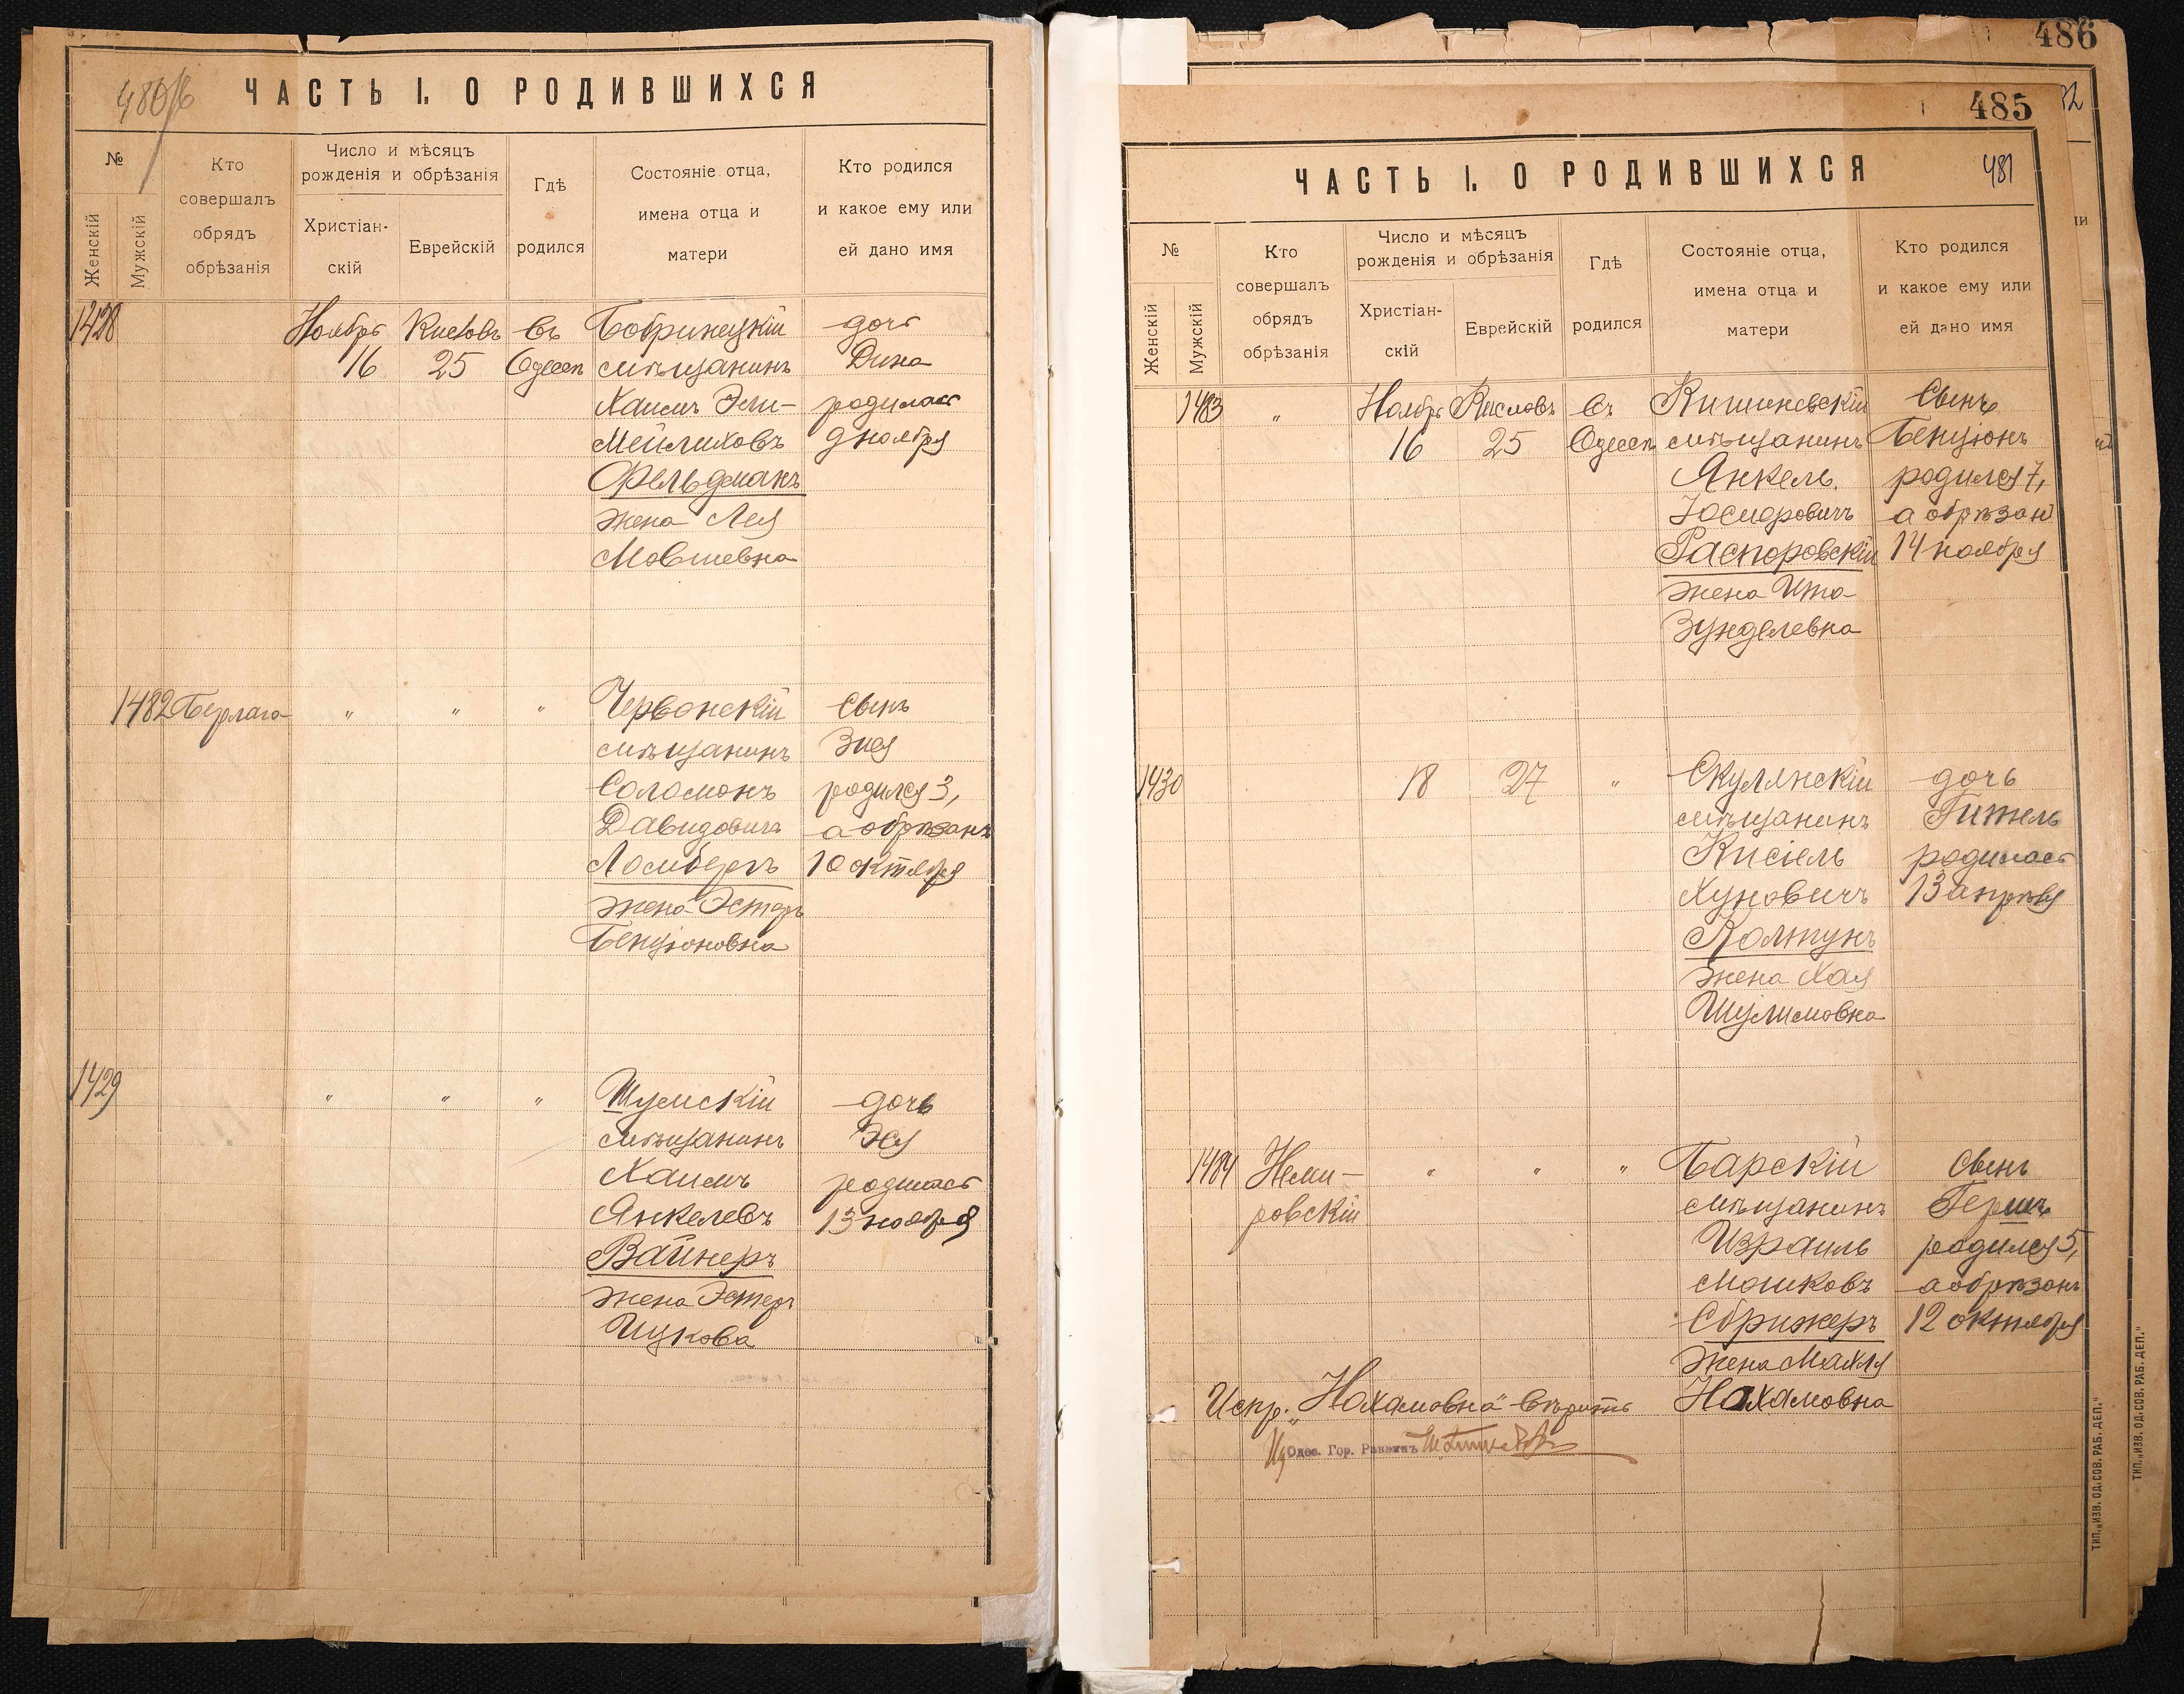 480/6
ЧАСТЬ I. О РОДИВШИХСЯ
№
Женскій
Мужскій
Кто совершалъ обрядъ обрѣзанія
Число и мѣсяцъ рожденія и обрѣзанія
Христіан-скій
Еврейскій
Гдѣ родился
Состояніе отца, имена отца и матери
Кто родился и какое ему или ей дано имя
1428 Ноябрь Кислевъ въ Бобринецкій дочь
16 25 Одессѣ мѣщанинъ Дина
Хаимъ Эли- родилась
Мейлиховъ 9 ноября
Фельдманъ
жена Лея
Мовшевна
1482 Берлага " " " Червонскій сынъ
мѣщанинъ Зися
Соломонъ родился 3,
Давидовичъ а обрѣзанъ
Ломбергъ 10 октября
жена Эстеръ
Бенціоновна
1429 " " " Шумскій дочь
мѣщанинъ Эся
Хаимъ родилась
Янкелевъ 13 ноября
Вайнеръ
жена Эстеръ
Ицкова
486
485
481
ЧАСТЬ I. О РОДИВШИХСЯ
№
Женскій
Мужскій
Кто совершалъ обрядъ обрѣзанія
Число и мѣсяцъ рожденія и обрѣзанія
Христіан-скій
Еврейскій
Гдѣ родился
Состояніе отца, имена отца и матери
Кто родился и какое ему или ей дано имя
1483 " Ноябрь Кислевъ въ Кишиневскій Сынъ
16 25 Одессѣ мѣщанинъ Бенціонъ
Янкель родился 7,
Іосифовичъ а обрѣзанъ
Распоровскій 14 ноября
жена Ита
Зунделевна
1430 18 27 " Скулянскій дочь
мѣщанинъ Гитель
Кисіель родилась
Хуновичъ 13 апрѣля
Колтунъ
жена Хая
Шулимовна
1484 Неми- " " " Барскій Сынъ
ровскій мѣщанинъ Гершъ
Израиль родился 5,
Мошковъ а обрѣзанъ
Сбрижеръ 12 октября
жена Махля
Испр. „Нахамовна" вѣрить Нахамовна
Одес. Гор. Раввинъ
ТИП. „ИЗВ. ОД. СОВ. РАБ. ДЕП."
ТИП. „ИЗВ. ОД. СОВ. РАБ. ДЕП."